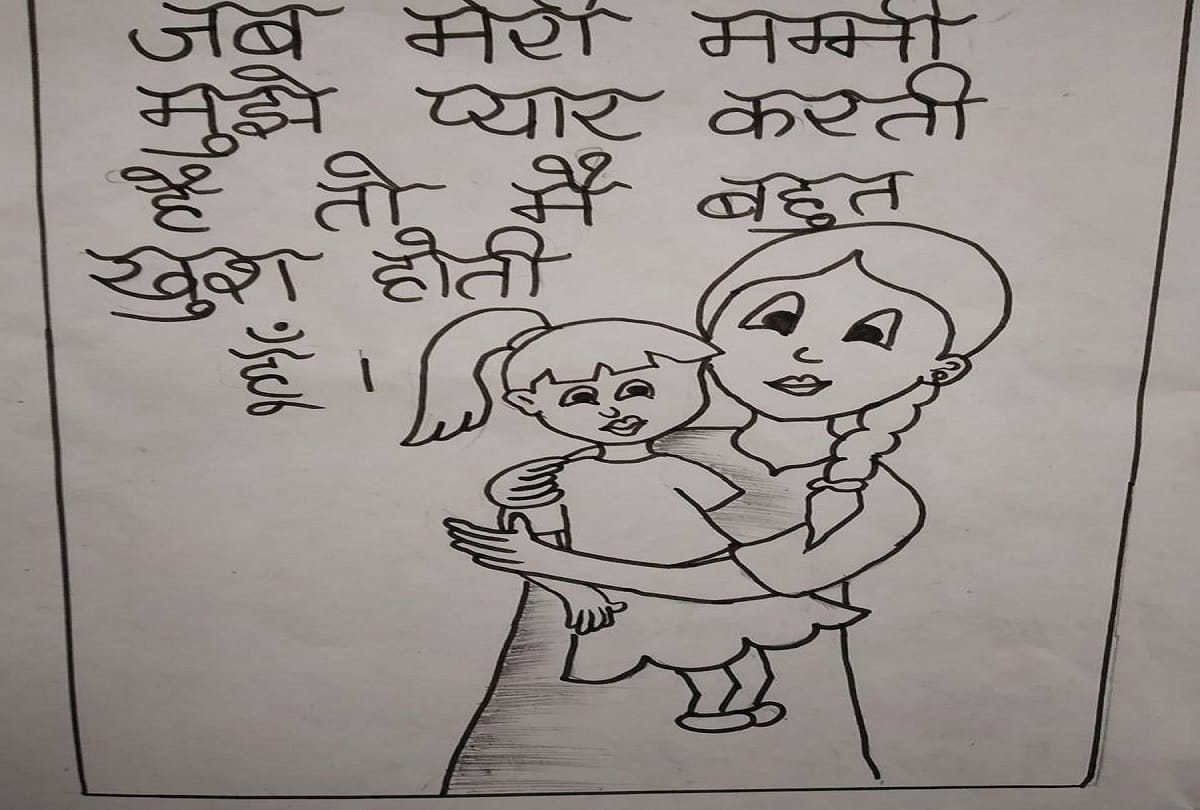 जब मेरी मम्मी
मुझे प्यार करती
है तो मै बहुत
खुश होती
हूँ ।